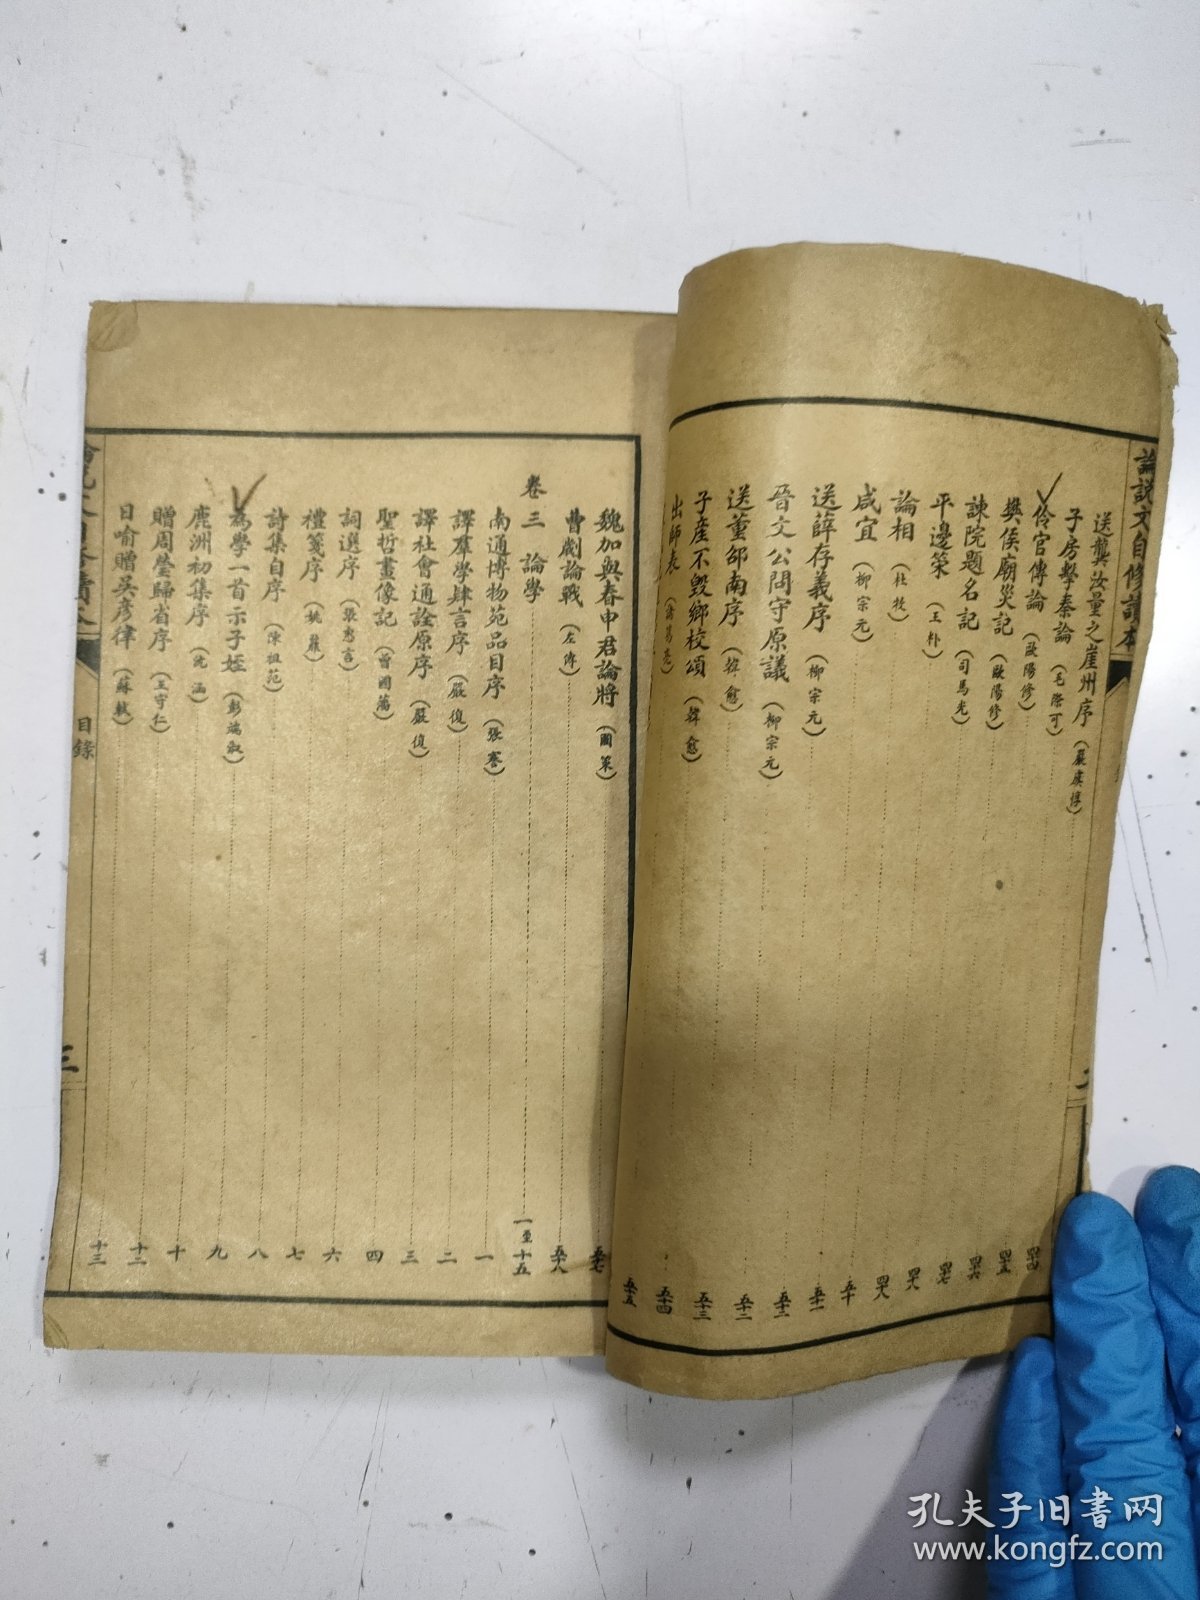 論説文自修讀本
送龔汝量之崖州序（嚴虞惇）
子房擊秦論（毛際可）
伶官傳論（歐陽修）四十四
樊侯廟災記（歐陽修）四十五
諫院題名記（司馬光）四十六
平邊策（王朴）四十七
論相（杜牧）四十八
咸宜（柳宗元）五十
送薛存義序（柳宗元）五十一
晉文公問守原議（柳宗元）
送董邵南序（韓愈）五十二
子產不毀鄉校頌（韓愈）五十三
出師表（諸葛亮）五十四
五十五
魏加與春申君論將（國策）五十七
曹劌論戰（左傳）五十八
卷三 論學 一至十五
南通博物苑品目序（張謇）一
譯羣學肄言序（嚴復）二
譯社會通詮原序（嚴復）三
聖哲畫像記（曾國藩）四
詞選序（張惠言）六
禮箋序（姚鼐）七
詩集自序（陳祖范）八
為學一首示子姪（彭端叔）九
鹿洲初集序（沈涵）十
贈周瑩歸省序（王守仁）十二
日喻贈吳彥律（蘇軾）十三
目錄
三
孔夫子旧书网
www.kongfz.com